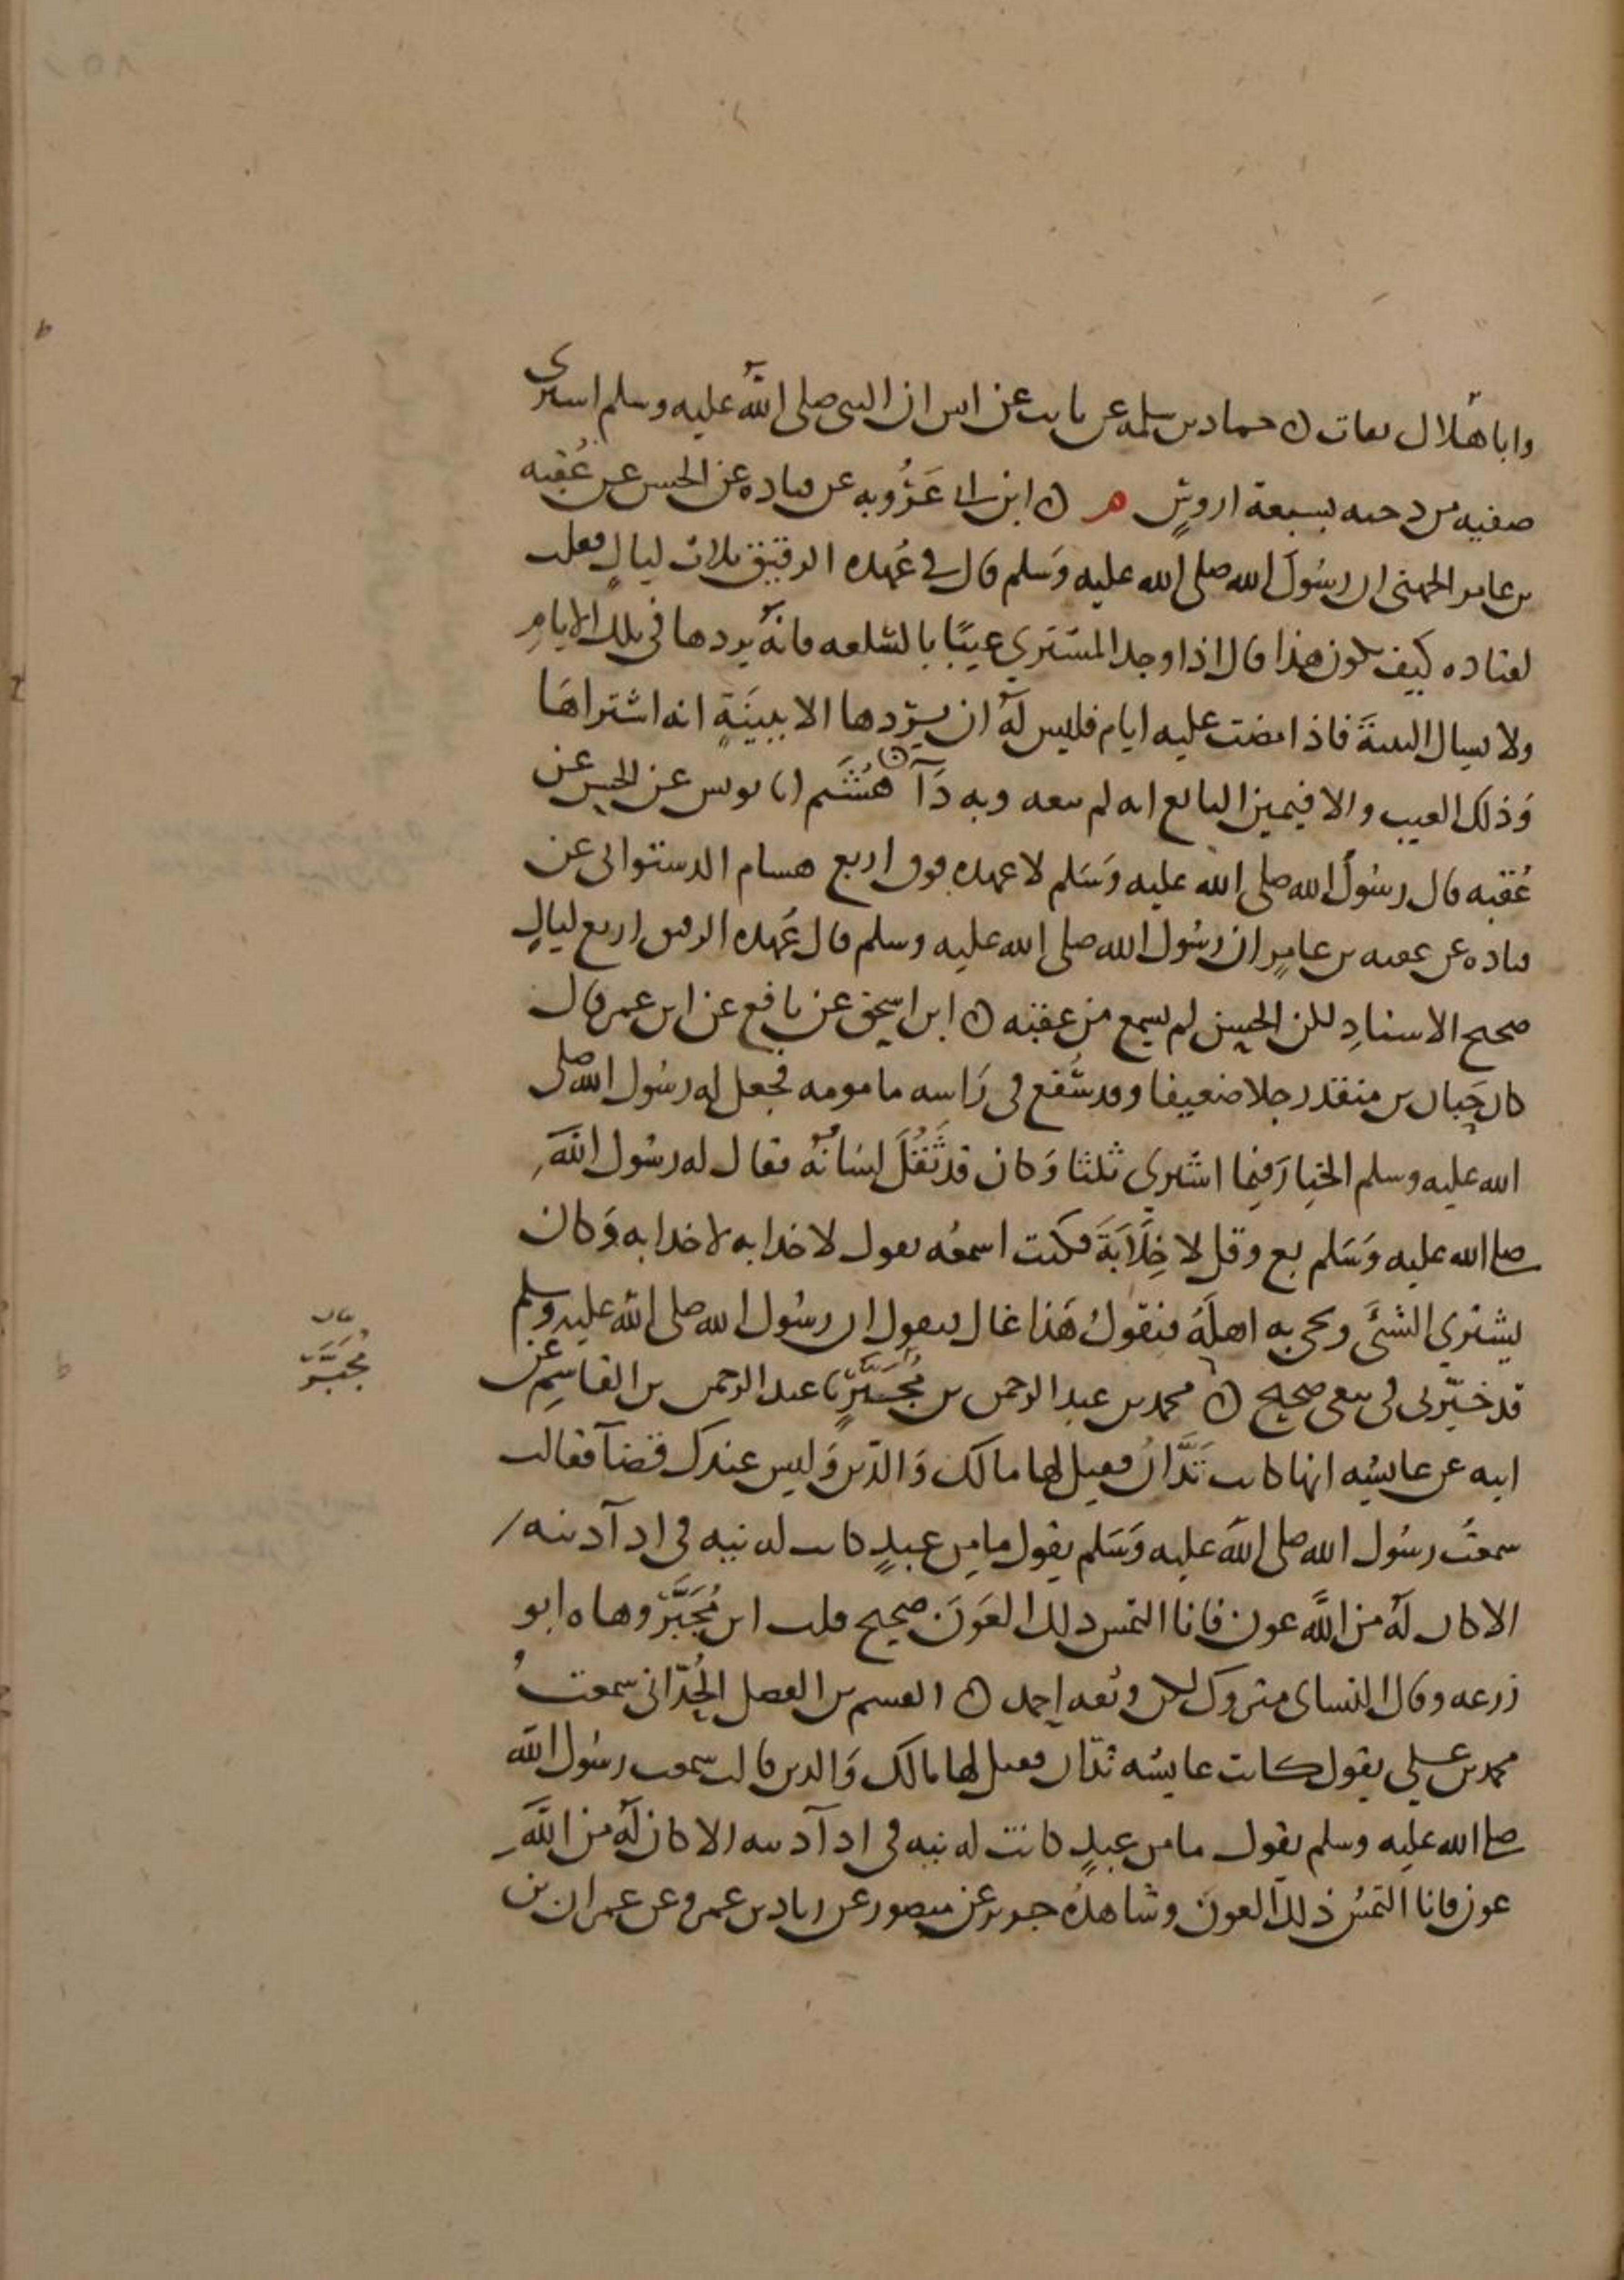 وابا هلال ثقات ن حماد بن سلمه عن ثابت عن انس ان النبي صلى الله عليه وسلم اشترى
صفيه من دحيه بسبعة اروس م ن ابن ابي عَرُوبه عن قتاده عن الحسن عن عُقبه
بن عامر الجهني ان رسُولَ الله صلى الله عليه وَسَلم قال في عُهده الرقيق ثلاث ليالٍ فقلت
لقتاده كيف يكون هذا قال اذا وجد المشتري عيبًا بالسلعه فانهُ يردها في تلك الايامِ
ولا يسال البينةَ فاذا مضت عليه ايام فليس لهُ ان يردها الا ببينَةٍ انه اشتراهَا
وَذلك العيب والا فيمين البايع انه لم يبعه وبه دَآ هُشَيم انا يونس عن الحسن عن
عُقبه قال رسُولُ الله صلى الله عليه وَسَلم لا عهده فوق اربع هشام الدستوائى عن
قتاده عن عقبه بن عامرٍ ان رسُول الله صلى الله عليه وسلم قال عُهده الرقيق اربع ليالٍ
صحيح الاسنادِ لكن الحسن لم يسمع من عقبه ن ابن اسحق عن نافع عن ابن عمر قال
كان حَبان بن منقذ رجلا ضعيفا وقد سُفع فى رَاسه مامومه فجعل له رسُول الله صلى
الله عليه وسلم الخيارَ فيما اشترى ثلثا وَكان قد ثَقُلَ لسَانهُ فقال له رسُول اللَّهِ
صلى الله عليه وَسَلم بع وقل لا خِلَابَةَ فكنت اسمعُه يقول لا خدابه لا خدابه وَكان
يشتري الشئَ ويجى به اهلَهُ فيَقولُ هَذا غال فيقول ان رسُول الله صلى الله عليه وسلم
قد خيّرنى فى بيعى صحيح ن محمد بن عبد الرحمن بن مُجَبَّرٍ نا عبد الرحمن بن القاسِم عن
ابيه عن عايشه انها كانت تَدَّانُ فقيل لها مالك وَالدّين وَليس عندك قضآ فقالت
سمعتُ رسُول الله صلى الله عليه وَسَلم يقول ما مِن عبدٍ كانت له نيه فى ادآ دينه
الا كان لهُ من اللَّه عون فانا التمس ذلك العَونَ صحيح قلت ابن مُجَبَّرٍ وهاه ابو
زرعه وقال النساى متروك لكن وثقه احمد ن القسم بن الفضل الحُدّانى سمعتُ
محمد بن على يقول كانت عايشه تدّان فقيل لها مالك وَالدين قالت سمعت رسُول الله
صلى الله عليه وسلم يقول ما من عبدٍ كانت له نيه فى ادآ دينه الا كان لهُ من اللَّهِ
عون فانا التمسُ ذلك العون وشاهدهُ جرير عن منصور عن زياد بن عمرو عن عمران بن
بيان
مُجَبَّر